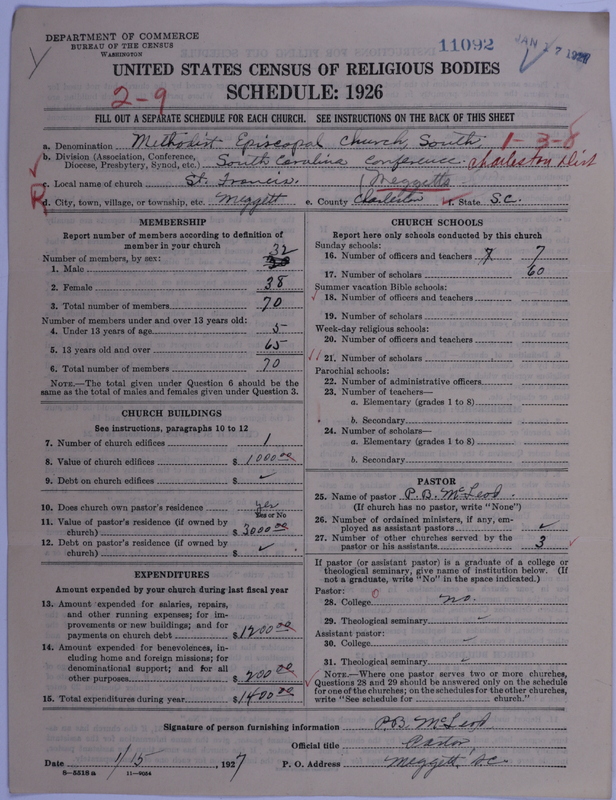 DEPARTMENT OF COMMERCE
BUREAU OF THE CENSUS
WASHINGTON
11092
JAN 17 1927
UNITED STATES CENSUS OF RELIGIOUS BODIES
SCHEDULE: 1926
2-9
FILL OUT A SEPARATE SCHEDULE FOR EACH CHURCH. SEE INSTRUCTIONS ON THE BACK OF THIS SHEET
a. Denomination Methodist Episcopal Church, South, 1-3-8
b. Division (Association, Conference, Diocese, Presbytery, Synod, etc.) South Carolina Conference. Charleston Dist
c. Local name of church St. Francis. (Meggetts
R
d. City, town, village, or township, etc. Meggett e. County Charleston f. State S.C.
MEMBERSHIP
Report number of members according to definition of
member in your church
Number of members, by sex: 32
1. Male
2. Female 38
3. Total number of members 70
Number of members under and over 13 years old:
4. Under 13 years of age 5
5. 13 years old and over 65
6. Total number of members 70
NOTE.—The total given under Question 6 should be the
same as the total of males and females given under Question 3.
CHURCH BUILDINGS
See instructions, paragraphs 10 to 12
7. Number of church edifices 1
8. Value of church edifices $ 1000.00
9. Debt on church edifices $ ✓
10. Does church own pastor's residence yes
Yes or No
11. Value of pastor's residence (if owned by
church) $ 3000.00
12. Debt on pastor's residence (if owned by
church) $ ✓
EXPENDITURES
Amount expended by your church during last fiscal year
13. Amount expended for salaries, repairs,
and other running expenses; for im-
provements or new buildings; and for
payments on church debt $ 1200.00
14. Amount expended for benevolences, in-
cluding home and foreign missions; for
denominational support; and for all
other purposes $ 200.00
15. Total expenditures during year $ 1400.00
CHURCH SCHOOLS
Report here only schools conducted by this church
Sunday schools:
16. Number of officers and teachers 7 7
17. Number of scholars 60
Summer vacation Bible schools:
18. Number of officers and teachers
19. Number of scholars
Week-day religious schools:
20. Number of officers and teachers
21. Number of scholars
Parochial schools:
22. Number of administrative officers
23. Number of teachers—
a. Elementary (grades 1 to 8)
b. Secondary
24. Number of scholars—
a. Elementary (grades 1 to 8)
b. Secondary
PASTOR
25. Name of pastor P.B. McLeod.
(If church has no pastor, write "None")
26. Number of ordained ministers, if any, em-
ployed as assistant pastors ✓
27. Number of other churches served by the
pastor or his assistants 3
If pastor (or assistant pastor) is a graduate of a college or
theological seminary, give name of institution below. (If
not a graduate, write "No" in the space indicated.)
Pastor: 0
28. College no.
29. Theological seminary ✓
Assistant pastor:
30. College ✓
31. Theological seminary ✓
NOTE.—Where one pastor serves two or more churches,
Questions 28 and 29 should be answered only on the schedule
for one of the churches; on the schedules for the other churches,
write "See schedule for church."
Signature of person furnishing information P.B. McLeod
Official title Pastor,
Date 1/15, 1927 P. O. Address Meggett, S.C.
8-5518a 11-9034